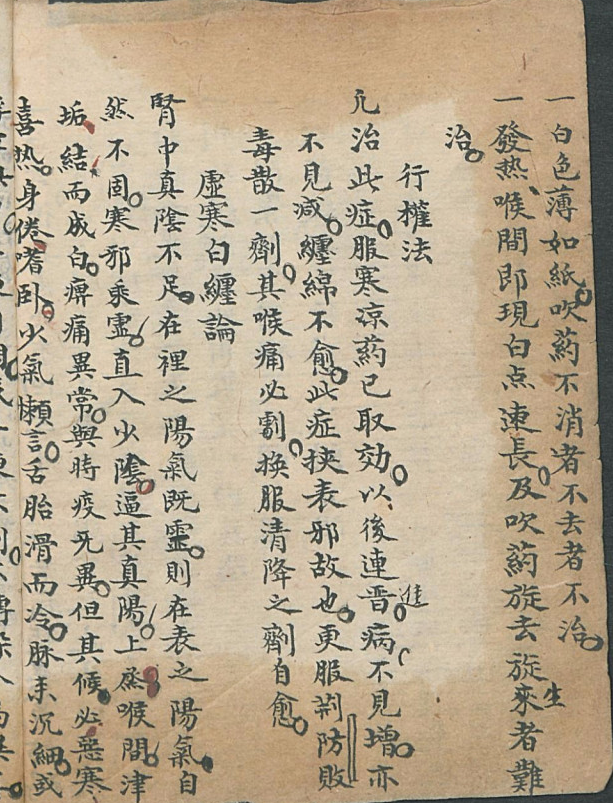 一白色薄如紙吹葯不消者不去者不治
一發热喉間即現白点連長及吹葯旋去旋來者難
生
治
行權法
凡治此症服寒凉葯已取効以後連晋病不見增亦
進
不見減纏綿不愈此症挾表邪故也更服荊防敗
毒散一劑其喉痛必劇换服清降之劑自愈
虛寒白纏論
腎中真陰不足在裡之陽氣既虛則在表之陽氣自
然不固寒邪乘虛直入少陰逼其真陽上蒸喉間津
垢結而成白痹痛異常與時疫旡異但其候必惡寒
喜热身倦嗜卧少氣懶言舌胎滑而冷脉来沉細或